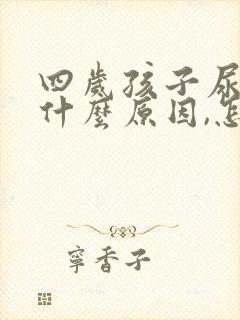 四歲孩子尿
什麼原因,怎
寧香子